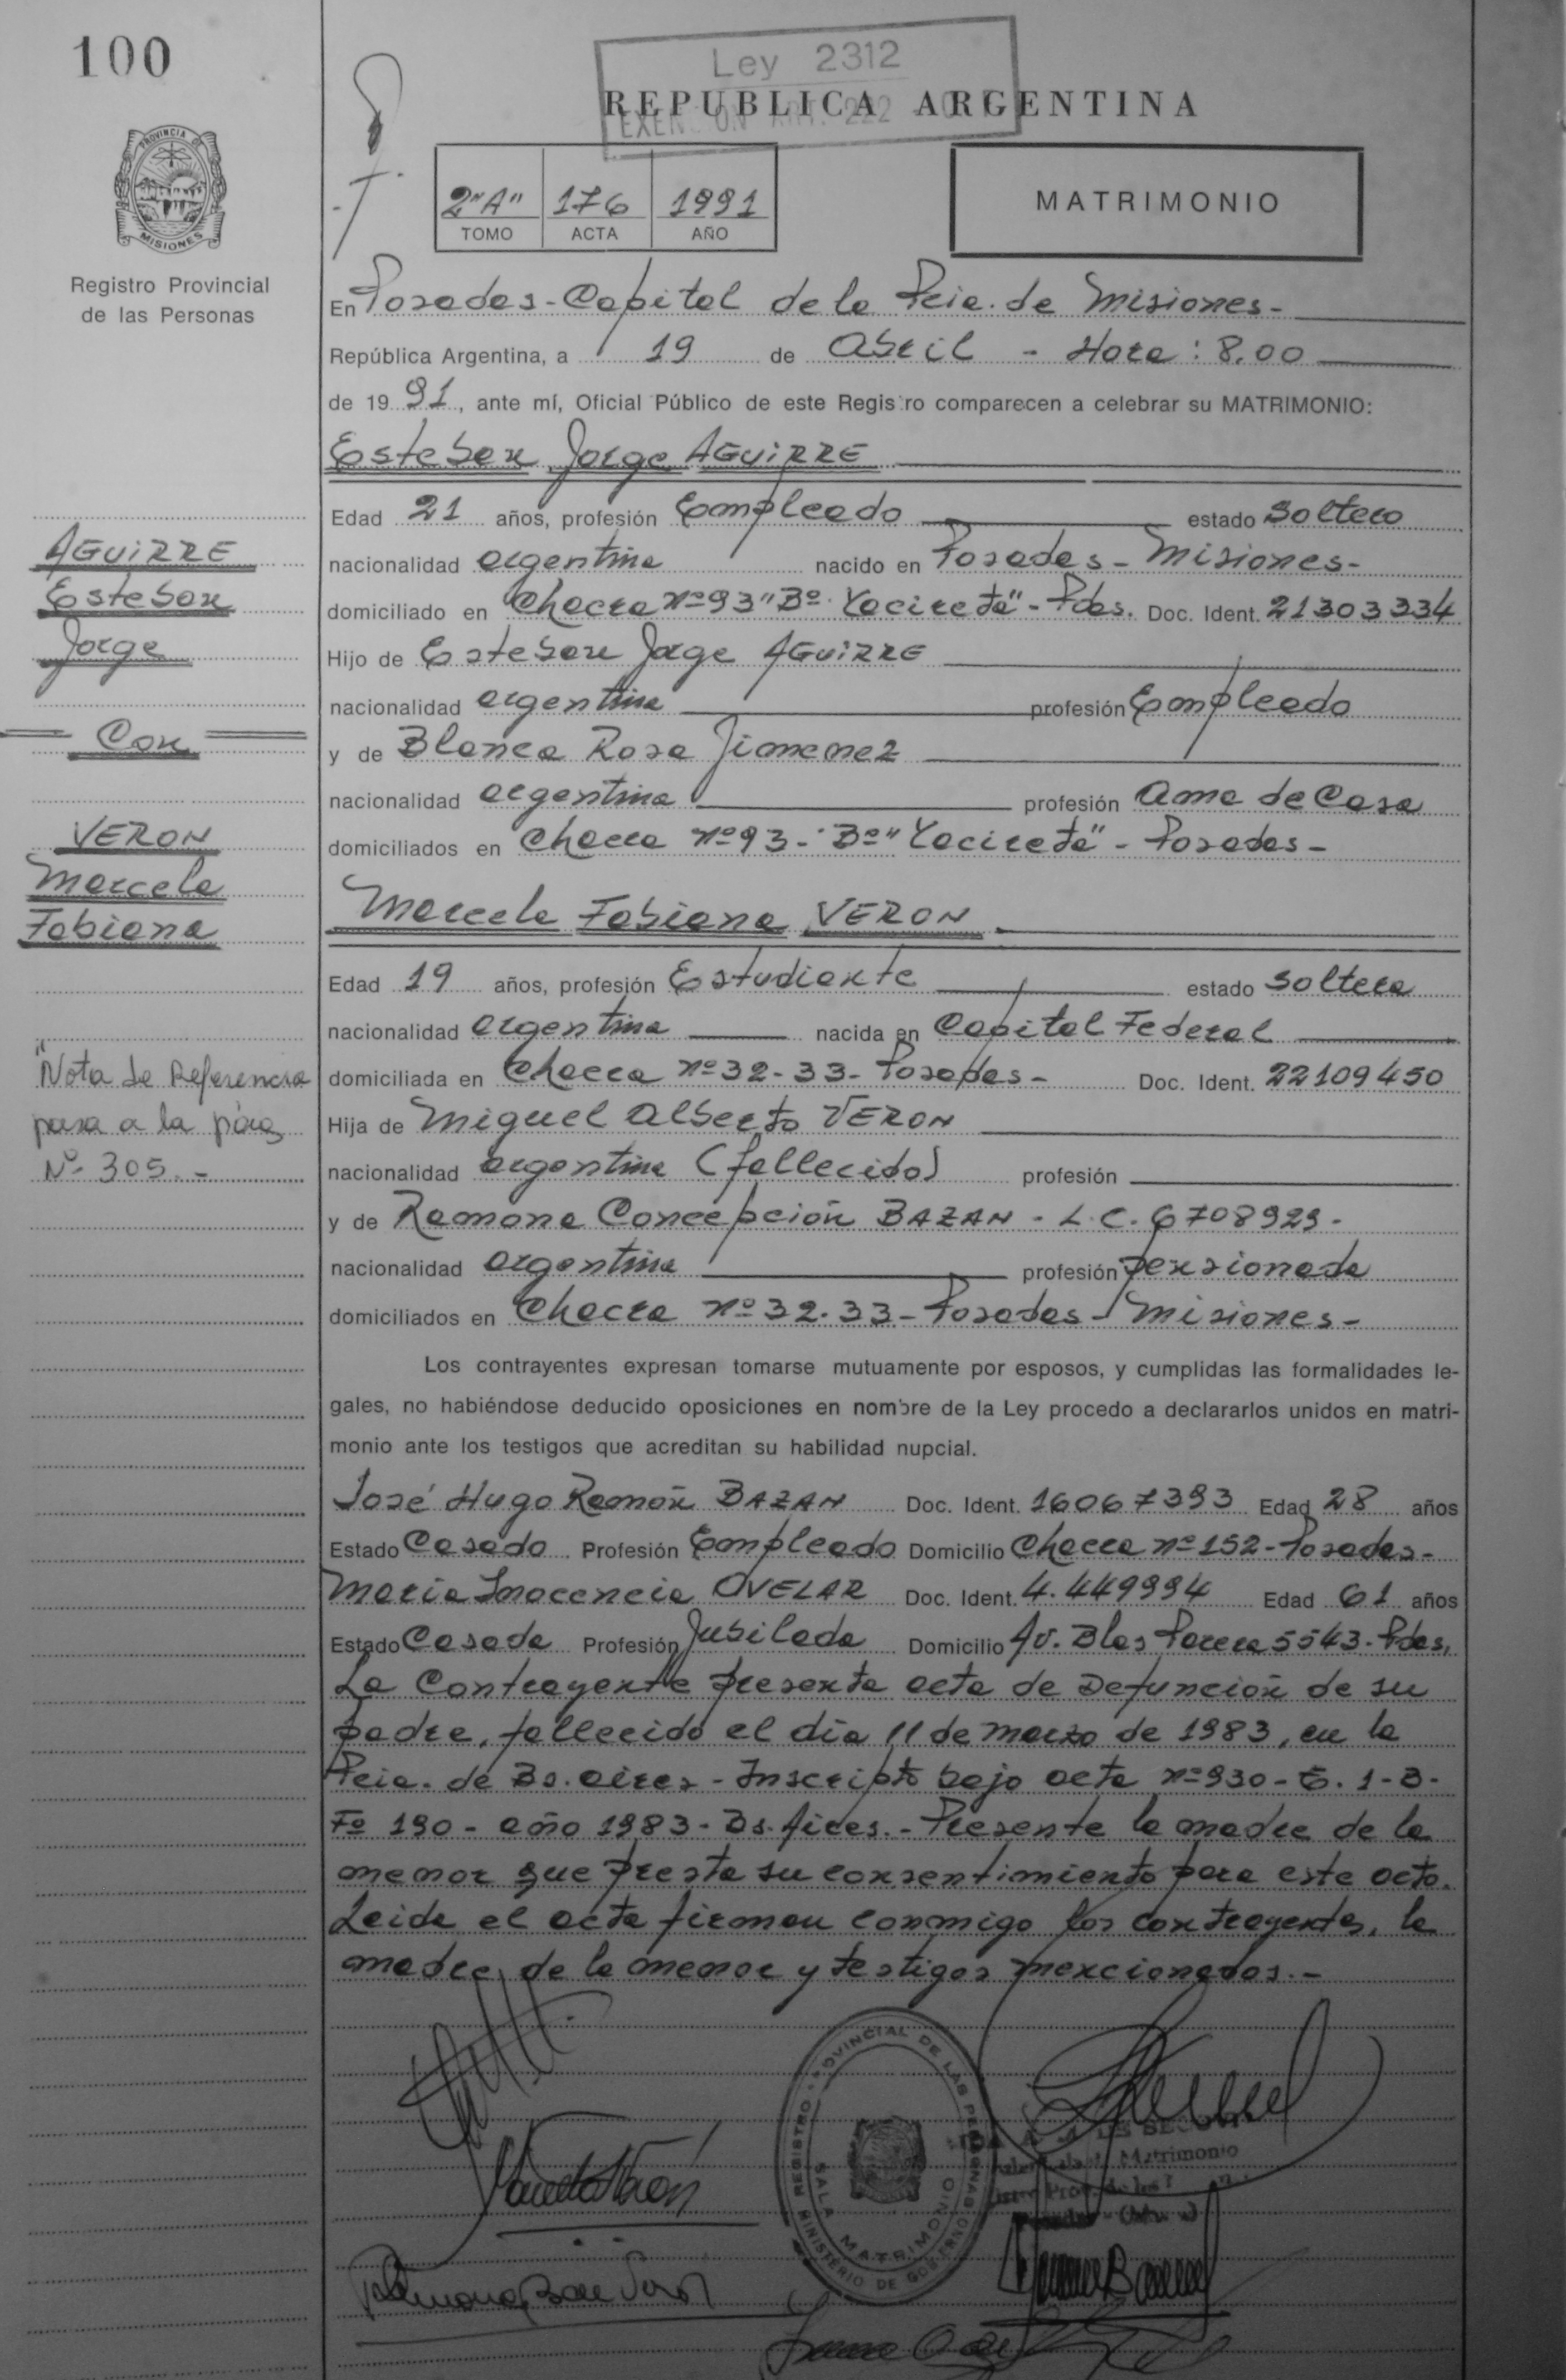 100
Ley 2312
REPUBLICA ARGENTINA
PROVINCIA DE
MISIONES
Registro Provincial
de las Personas
2"A" 176 1991
TOMO ACTA AÑO
MATRIMONIO
En Posadas - Capital de la Pcia. de Misiones -
República Argentina, a 19 de Abril - Hora : 8.00
de 19 91, ante mí, Oficial Público de este Registro comparecen a celebrar su MATRIMONIO:
Esteban Jorge AGUIRRE
Edad 21 años, profesión Empleado estado Soltero
nacionalidad argentina nacido en Posadas - Misiones -
domiciliado en Chacra nº 93 "Bº. Yacireta" - Pdas. Doc. Ident. 21303334
Hijo de Esteban Jorge AGUIRRE
nacionalidad argentina profesión Empleado
y de Blanca Rosa Jimenez
nacionalidad argentina profesión Ama de Casa
domiciliados en Chacra nº 93 - Bº "Yacireta" - Posadas -
Marcela Fabiana VERON
Edad 19 años, profesión Estudiante estado Soltera
nacionalidad argentina nacida en Capital Federal
domiciliada en Chacra nº 32-33 - Posadas - Doc. Ident. 22109450
Hija de Miguel Alberto VERON
nacionalidad argentina (fallecido) profesión
y de Ramona Concepción BAZAN - L.C. 6708929 -
nacionalidad argentina profesión pensionada
domiciliados en Chacra nº 32-33 - Posadas - Misiones -
AGUIRRE
Esteban
Jorge
Con
VERON
Marcela
Fabiana
"Nota de Referencia
pasa a la pág
Nº 305. -
Los contrayentes expresan tomarse mutuamente por esposos, y cumplidas las formalidades le-
gales, no habiéndose deducido oposiciones en nombre de la Ley procedo a declararlos unidos en matri-
monio ante los testigos que acreditan su habilidad nupcial.
José Hugo Ramón BAZAN Doc. Ident. 16067393 Edad 28 años
Estado Casado Profesión Empleado Domicilio Chacra nº 152 - Posadas -
Maria Inocencia OVELAR Doc. Ident. 4.449994 Edad 61 años
Estado Casada Profesión Jubilada Domicilio Av. Blas Parera 5543 - Pdas.
La Contrayente presenta acta de Defunción de su
padre, fallecido el día 11 de marzo de 1983, en la
Pcia. de Bs. Aires - Inscripto bajo acta nº 930 - T. 1-B -
Fº 190 - año 1983 - Bs. Aires. - Presente la madre de la
menor que presta su consentimiento para este acto.
Leída el acta firman conmigo los contrayentes, la
madre de la menor y testigos mencionados. -
REGISTRO PROVINCIAL DE LAS PERSONAS
SALA MATRIMONIO
MINISTERIO DE GOBIERNO
Matrimonio